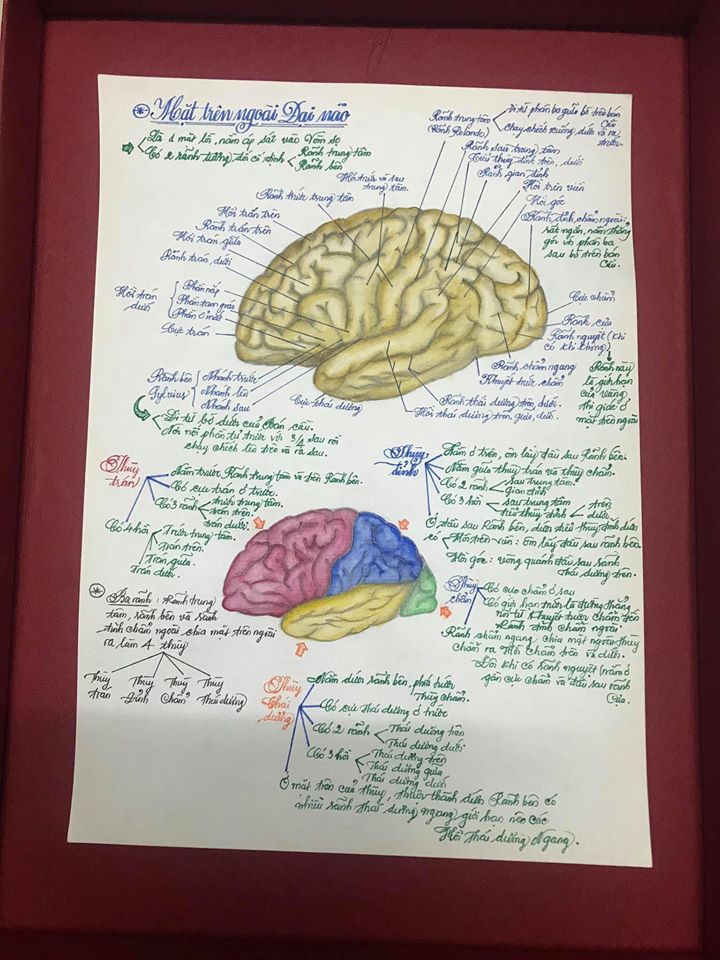 Mặt trên ngoài Đại não
Là 1 mặt lồi, nằm áp sát vào Vòm sọ
Có 2 rãnh tương đối cố định
Rãnh trung tâm
Rãnh bên
Rãnh trung tâm
(Rãnh Rolando)
Đi từ phần ba giữa bờ trên bán
Cầu
chạy chếch xuống dưới và ra
trước.
Rãnh sau trung tâm
Tiểu thùy đỉnh trên, dưới
Rãnh gian đỉnh
Hồi trên viền
Hồi góc
Rãnh đỉnh chẩm ngoài:
rất ngắn, nằm thẳng
góc với phần ba
sau bờ trên bán
Cầu.
Hồi trước và sau
trung tâm.
Rãnh trước trung tâm
Hồi trán trên
Rãnh trán trên
Hồi trán giữa
Rãnh trán dưới
Hồi trán
dưới
Phần nắp
Phần tam giác
Phần ổ mắt
Cực trán
Rãnh bên
Sylvius
Nhánh trước
Nhánh lên
Nhánh sau
Cực thái dương
Cực chẩm
Rãnh cựa
Rãnh nguyệt (khi
có khi không)
Rãnh này
là giới hạn
của vùng
thị giác ở
mặt trên ngoài
Rãnh chẩm ngang
Khuyết trước chẩm
Rãnh thái dương trên, dưới.
Hồi thái dương trên, giữa, dưới.
Đi từ bờ dưới của bán cầu.
Nơi nối phần tư trước với 3/4 sau rồi
chạy chếch lên trên và ra sau.
Thùy
trán
Nằm trước Rãnh trung tâm và trên Rãnh bên.
Có cực trán ở trước.
Có 3 rãnh
trước trung tâm.
trán trên.
trán dưới.
Có 4 hồi
Trước trung tâm.
Trán trên.
Trán giữa.
Trán dưới.
Thùy
đỉnh
Nằm ở trên, ôm lấy đầu sau Rãnh bên.
Nằm giữa thùy trán và thùy chẩm.
Có 2 rãnh
sau trung tâm.
gian đỉnh
Có 3 hồi
sau trung tâm
tiểu thùy đỉnh
trên
dưới
Ở đầu sau Rãnh bên, dưới tiểu thùy đỉnh dưới
có
Hồi trên viền: ôm lấy đầu sau rãnh bên.
Hồi góc: vòng quanh đầu sau rãnh
Thái dương trên.
Thùy
chẩm
Có cực chẩm ở sau
Có giới hạn trước là đường thẳng
nối từ Khuyết trước chẩm đến
Rãnh đỉnh chẩm ngoài.
Rãnh chẩm ngang chia mặt ngoài thùy
chẩm ra Hồi Chẩm trên và dưới.
Đôi khi có Rãnh nguyệt (nằm ở
gần cực chẩm và đầu sau rãnh
Cựa.
Ba rãnh: Rãnh trung
tâm, rãnh bên và rãnh
đỉnh chẩm ngoài chia mặt trên ngoài
ra làm 4 thùy
Thùy
trán
Thùy
Đỉnh
Thùy
Chẩm
Thùy
Thái dương
Thùy
Thái
dương
Nằm dưới rãnh bên, phía trước
Thùy Chẩm.
Có cực Thái dương ở trước
Có 2 rãnh
Thái dương trên
Thái dương dưới
Có 3 hồi
Thái dương trên
Thái dương giữa
Thái dương dưới
Ở mặt trên của thùy, thuộc thành dưới Rãnh bên có
nhiều rãnh thái dương ngang giới hạn nên các
Hồi Thái dương Ngang.